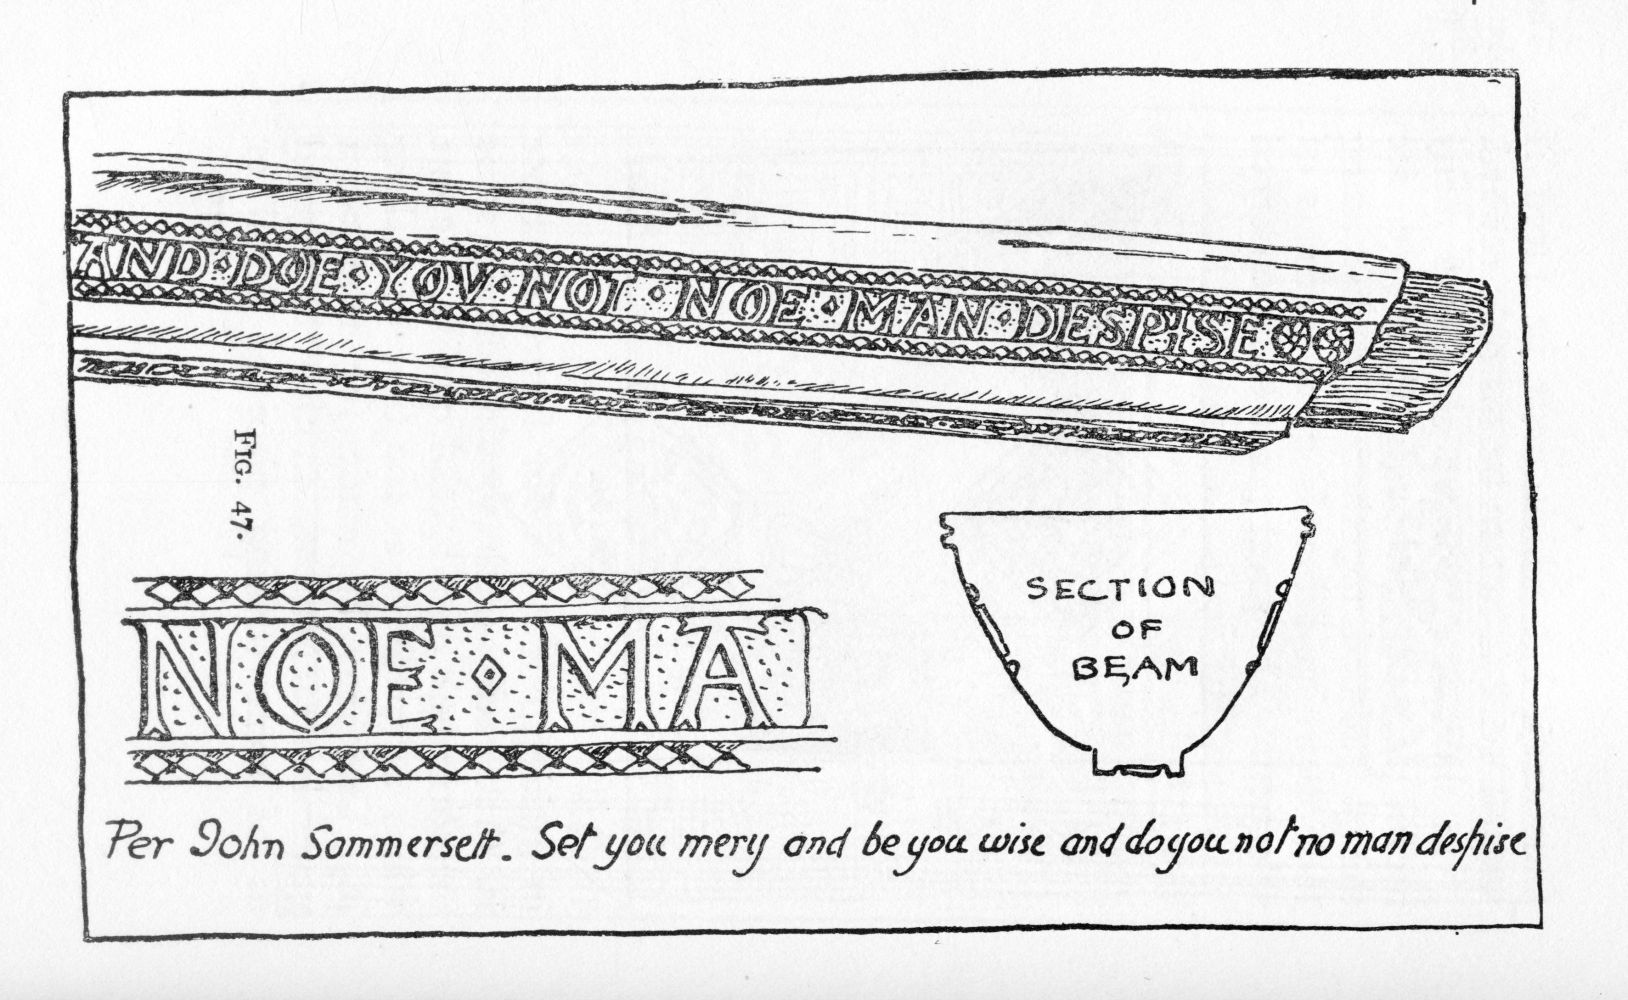 AND·DOE·YOV·NOT·NOE·MAN·DESPISE
FIG. 47.
NOE·MA
SECTION
OF
BEAM
Per John Sommersett. Set you mery and be you wise and do you not no man despise